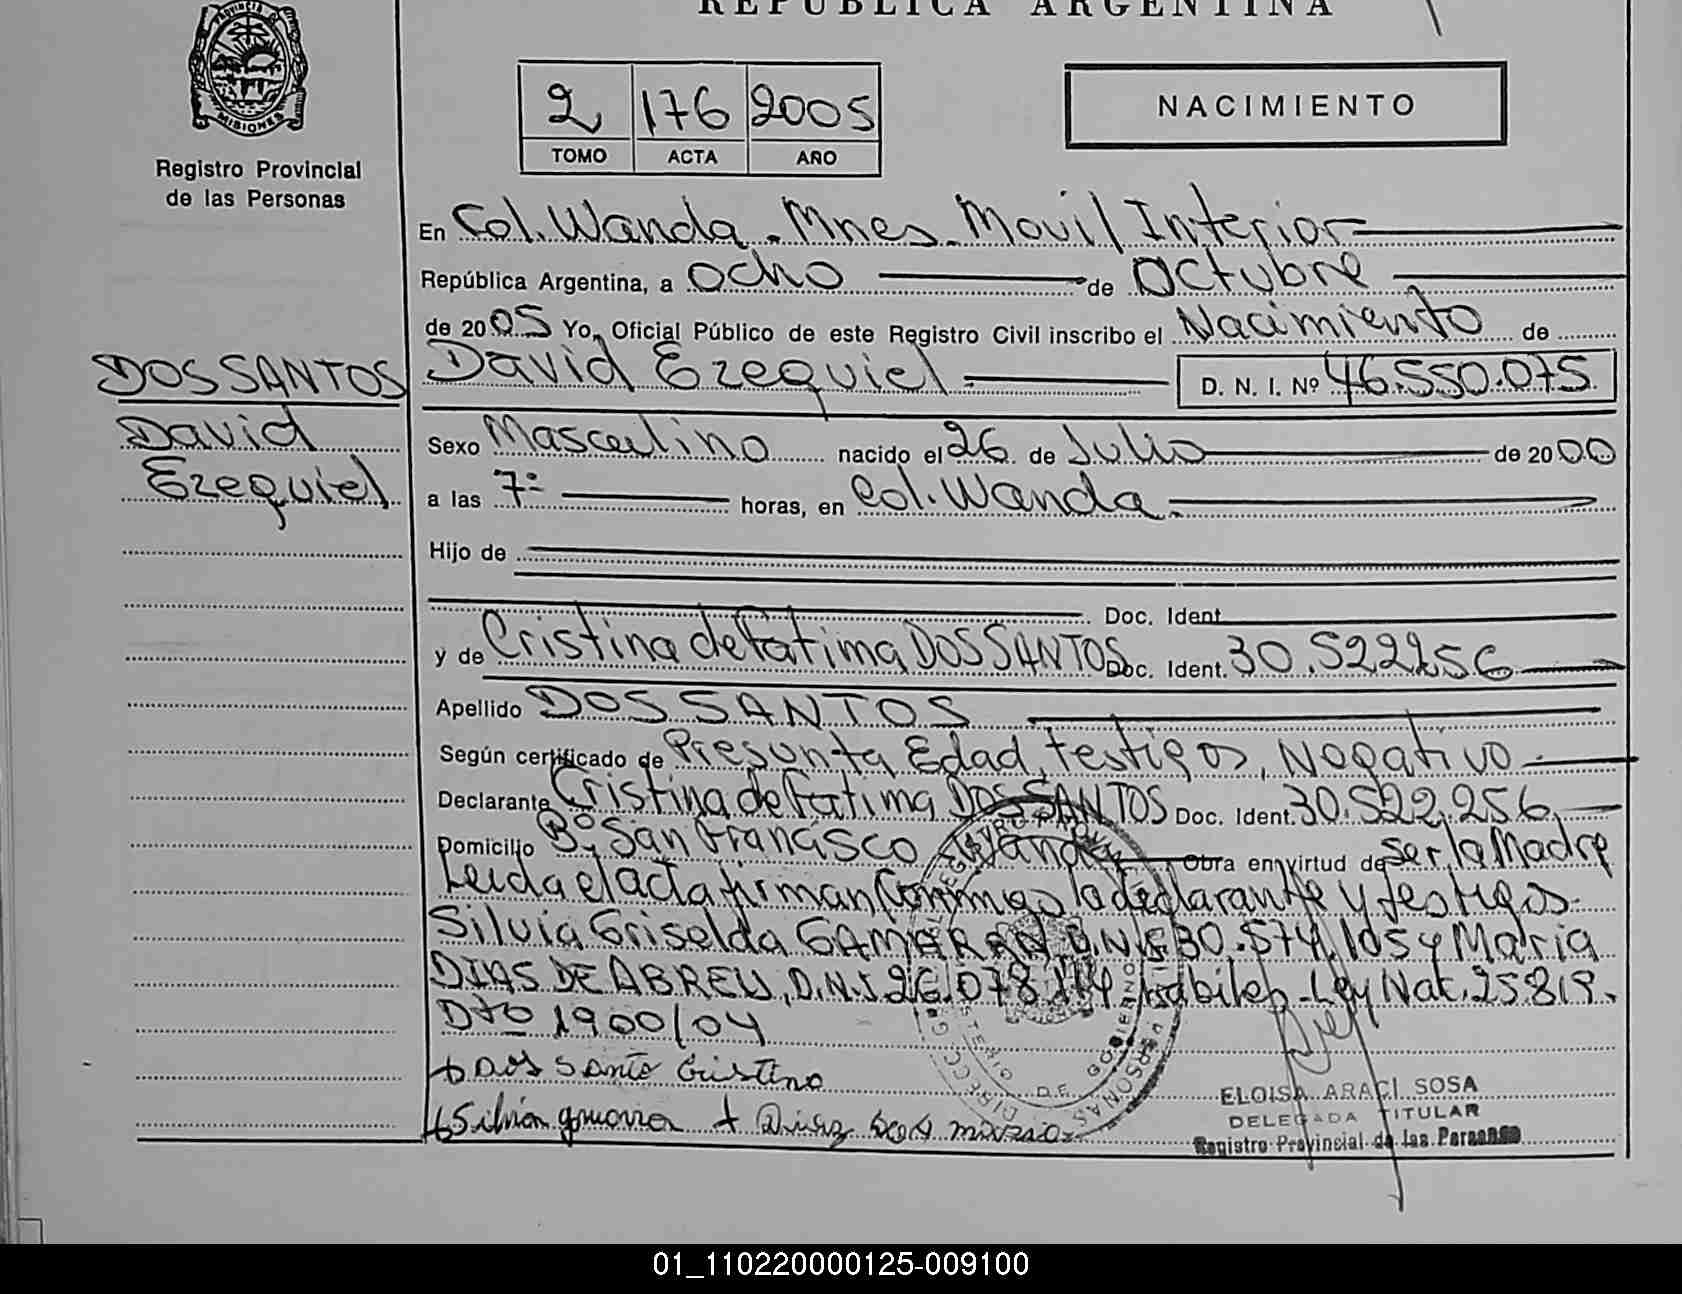 REPUBLICA ARGENTINA
MISIONES
Registro Provincial
de las Personas
2 176 2005
TOMO ACTA AÑO
NACIMIENTO
En Col. Wanda - Mnes - Movil Interior
República Argentina, a ocho de Octubre
de 2005 Yo, Oficial Público de este Registro Civil inscribo el Nacimiento de
David Ezequiel D. N. I. Nº 46.550.075
DOS SANTOS
David
Ezequiel
Sexo Masculino nacido el 26 de Julio de 2000
a las 7º horas, en Col. Wanda.
Hijo de
Doc. Ident.
y de Cristina de Fatima DOS SANTOS Doc. Ident. 30.522256
Apellido DOS SANTOS
Según certificado de Presunta Edad, testigos, Negativo
Declarante Cristina de Fatima DOS SANTOS Doc. Ident. 30.522.256
Domicilio Bº San Francisco Wanda Obra en virtud de ser la Madre
Leida el acta firman Conmigo la declarante y testigos
Silvia Griselda D.N.I. 30.574.105 y Maria
DIAS DE ABREU, D.N.I. 26.078. habiles - Ley Nac. 25819.
Dto 1900/04
Dos Santo Cristina
Silvia
ELOISA ARACI SOSA
DELEGADA TITULAR
Registro Provincial de las Personas
01_110220000125-009100